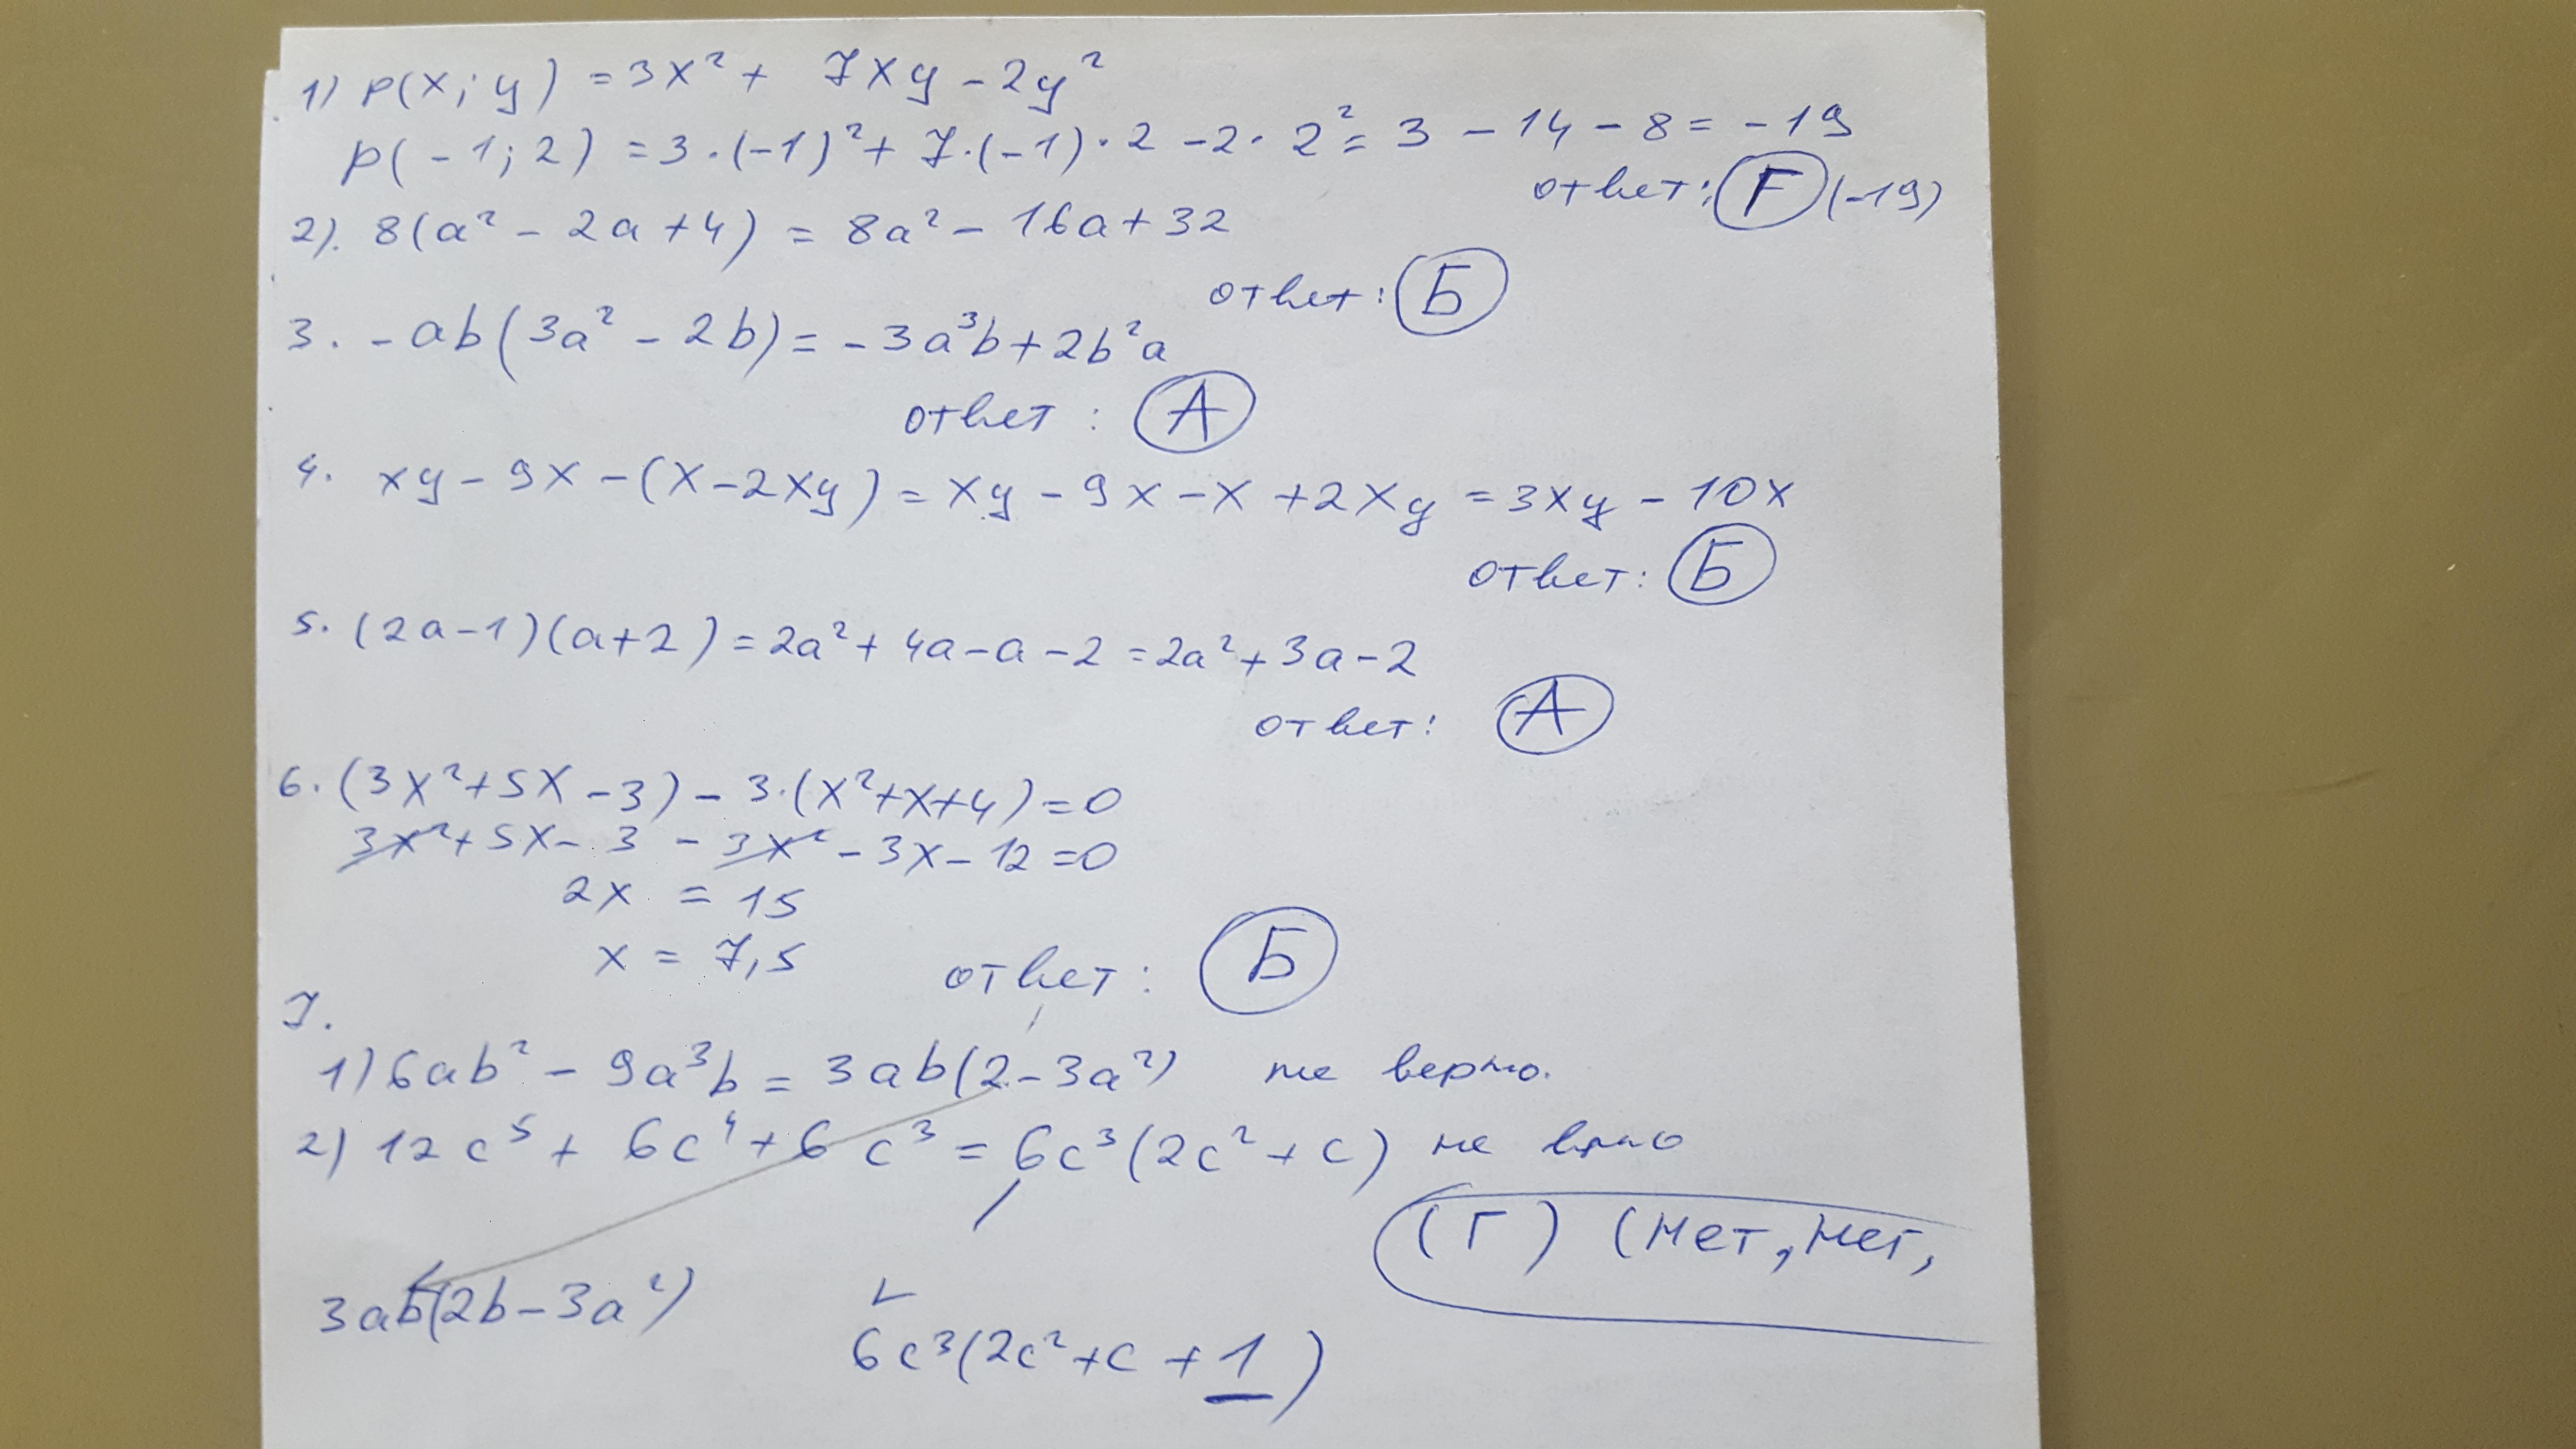 1) p(x; y) = 3x² + 7xy - 2y²
p(-1; 2) = 3·(-1)² + 7·(-1)·2 - 2·2² = 3 - 14 - 8 = -19
ответ: F (-19)
2). 8(a² - 2a + 4) = 8a² - 16a + 32
ответ: Б
3. -ab(3a² - 2b) = -3a³b + 2b²a
ответ: А
4. xy - 9x - (x - 2xy) = xy - 9x - x + 2xy = 3xy - 10x
ответ: Б
5. (2a - 1)(a + 2) = 2a² + 4a - a - 2 = 2a² + 3a - 2
ответ: А
6. (3x² + 5x - 3) - 3·(x² + x + 4) = 0
3x² + 5x - 3 - 3x² - 3x - 12 = 0
2x = 15
x = 7,5
ответ: Б
7.
1) 6ab² - 9a³b = 3ab(2 - 3a²) не верно.
2) 12c⁵ + 6c⁴ + 6c³ = 6c³(2c² + c) не
(Г) (нет, нет,
3ab(2b - 3a²)
6c³(2c² + c + 1)